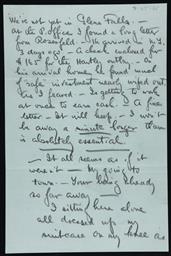 We're not yet in Glens Falls. — 
at the P. office I found a fine letter
from Rosenfeld. — He arrived in N.Y.
3 days ago — A check enclosed for
$165 for the Hartley outlay. — On
his arrival home he found most
"safe" investment nearly wiped out
has I feared — Is getting to work
at once to earn cash — A fine
letter — It will keep — I won't
be away a minute longer than
is absolutely essential. —
— It all seems as if it
weren't — My going to
town. — Your being already
so far away —
I sitting here alone
all dressed up, my
suitcase on my knee as